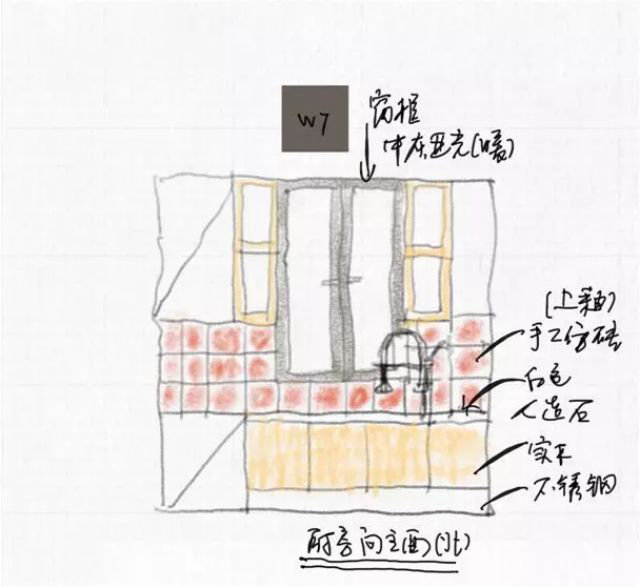 W7
窗框
中灰亚光(暖)
(上釉)
手工仿砖
白色
人造石
实木
不锈钢
厨房向立面(北)